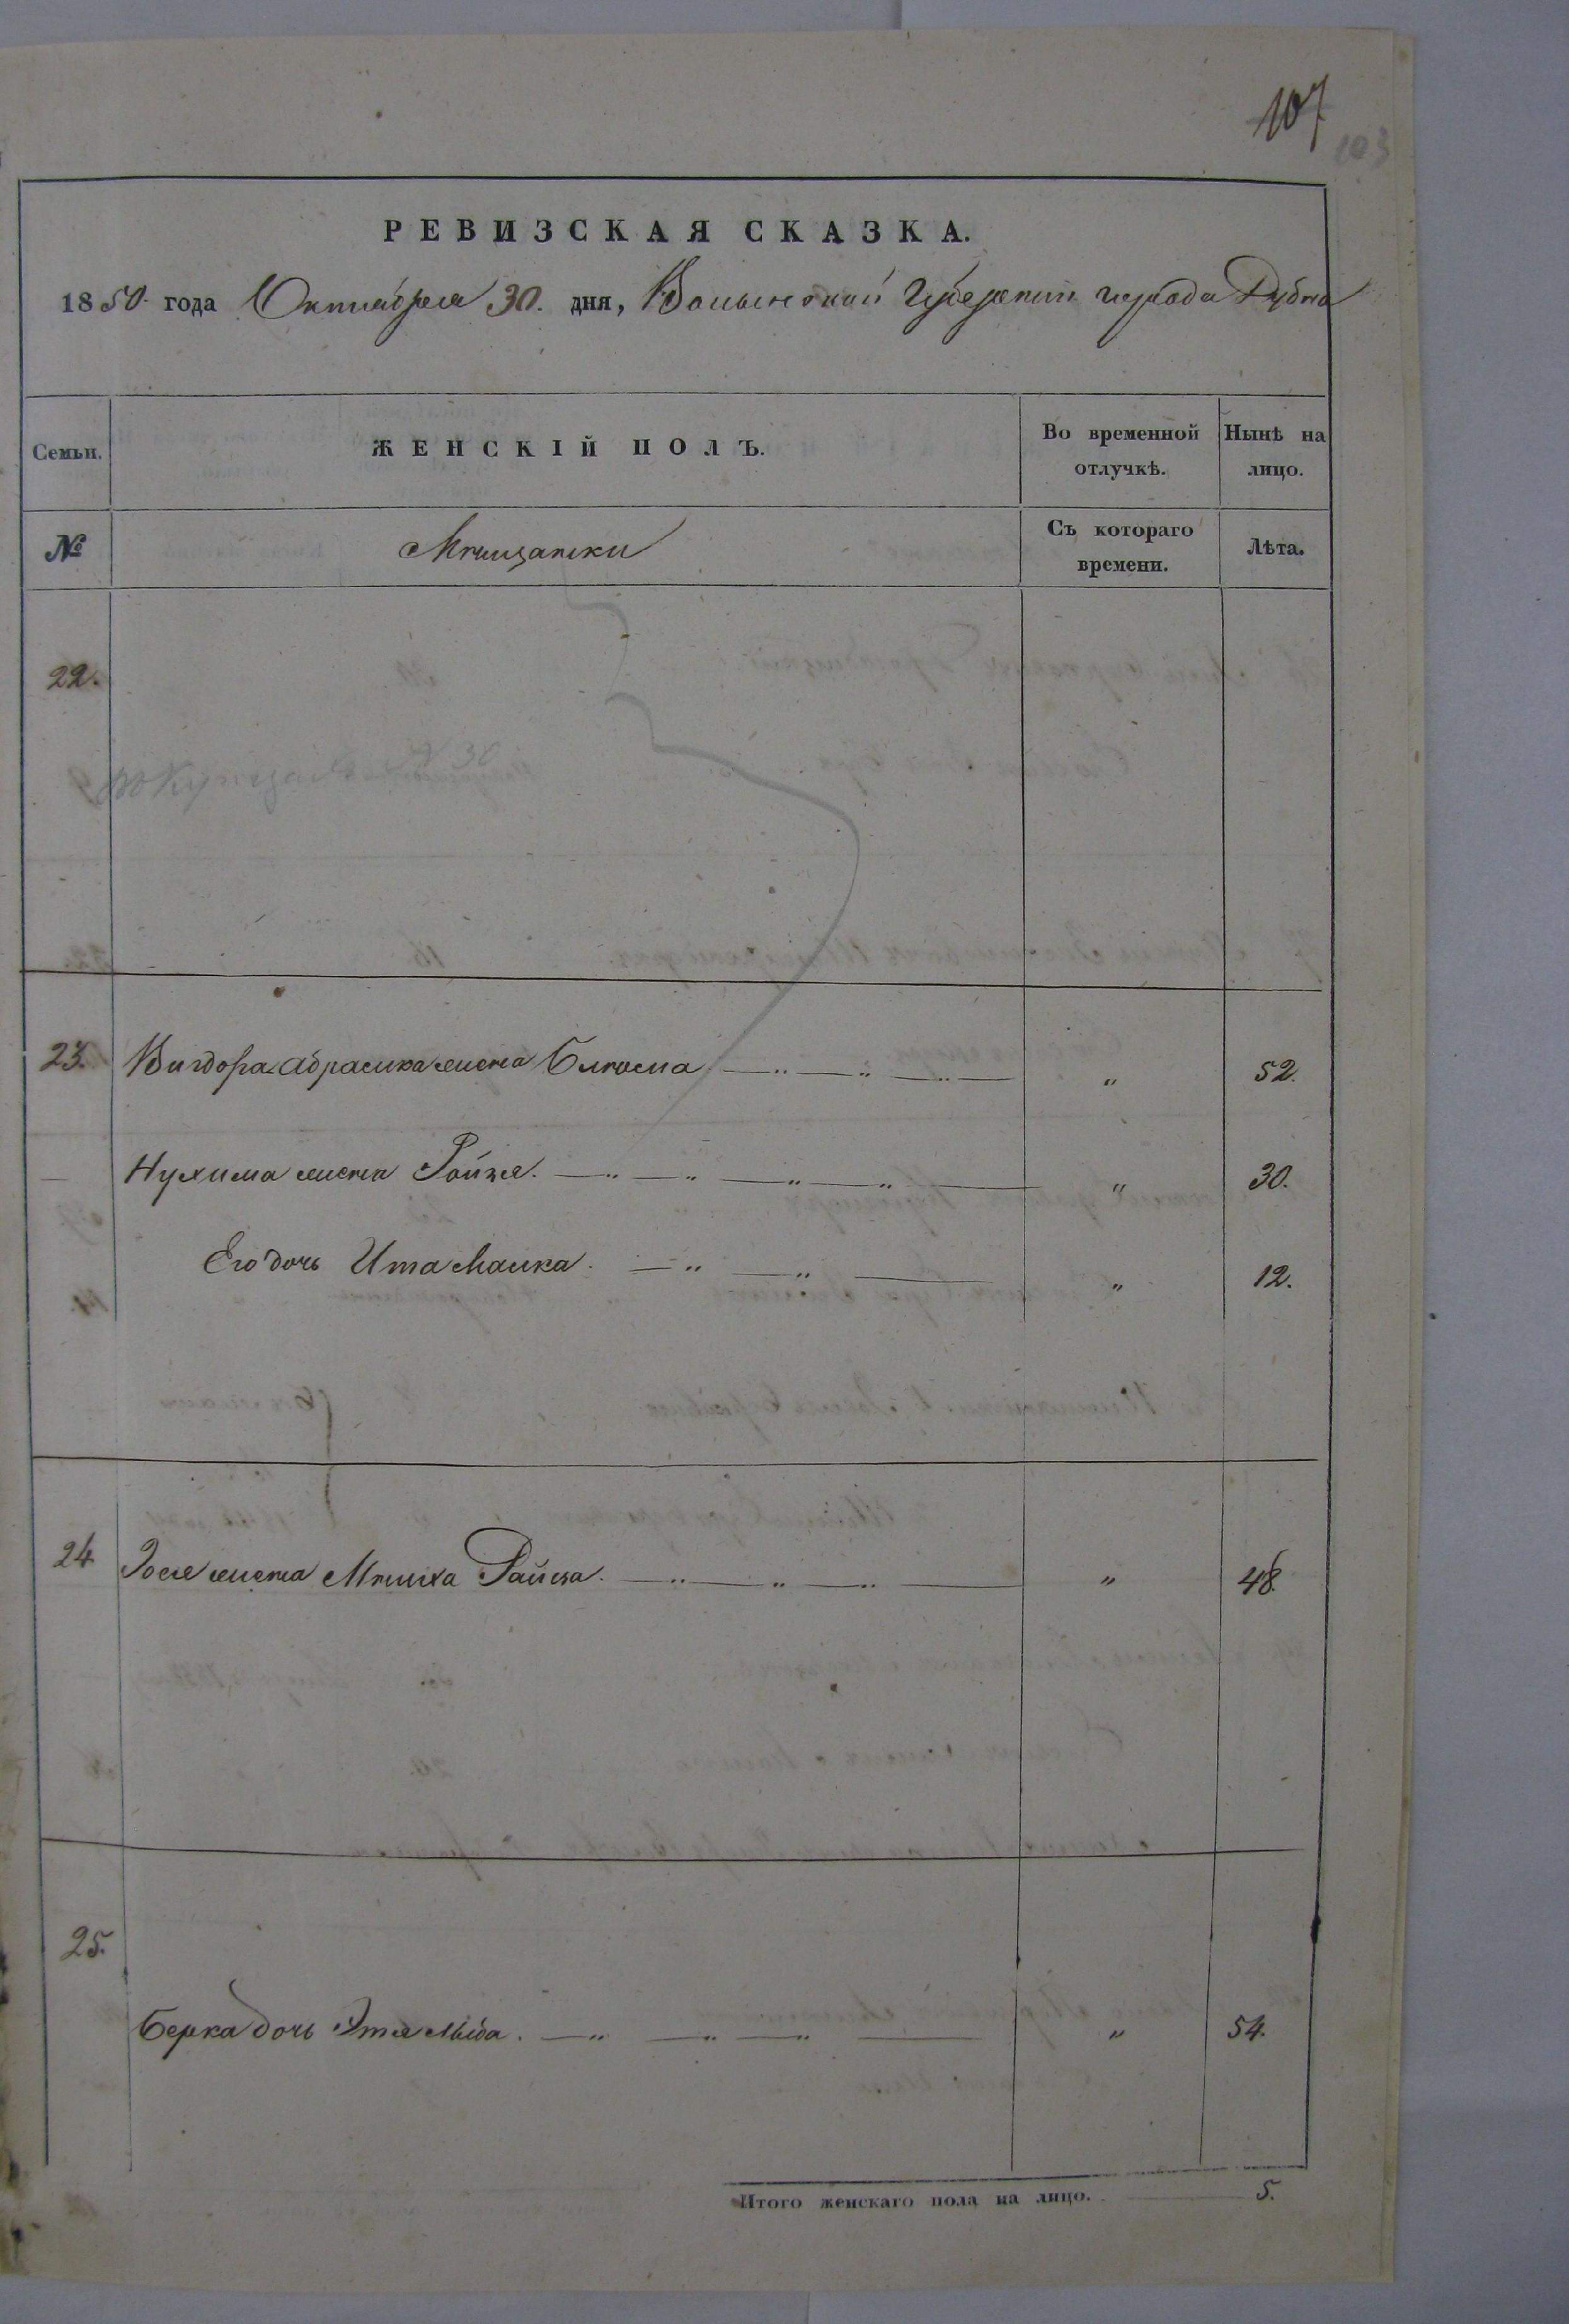 107
103
РЕВИЗСКАЯ СКАЗКА.
1850 года Октября 30. дня, Волынской Губернии города Дубна
Семьи. ЖЕНСКІЙ ПОЛЪ. Во временной отлучкѣ. Нынѣ на лицо.
№ Мѣщанки Съ котораго времени. Лѣта.
22.
№ 30
въ Купцахъ
23. Вигдора Абрамка жена Блюма — " — " — " — " 52.
Нухима жена Ройзя. — " — " — " — " — " 30.
Его дочь Ита Малка. — " — " — " 12.
24 Зося жена Мниха Райца. — " — " — " — " 48.
25.
Берка дочь Этя . — " — " — " — " 54.
Итого женскаго пола на лицо. 5.